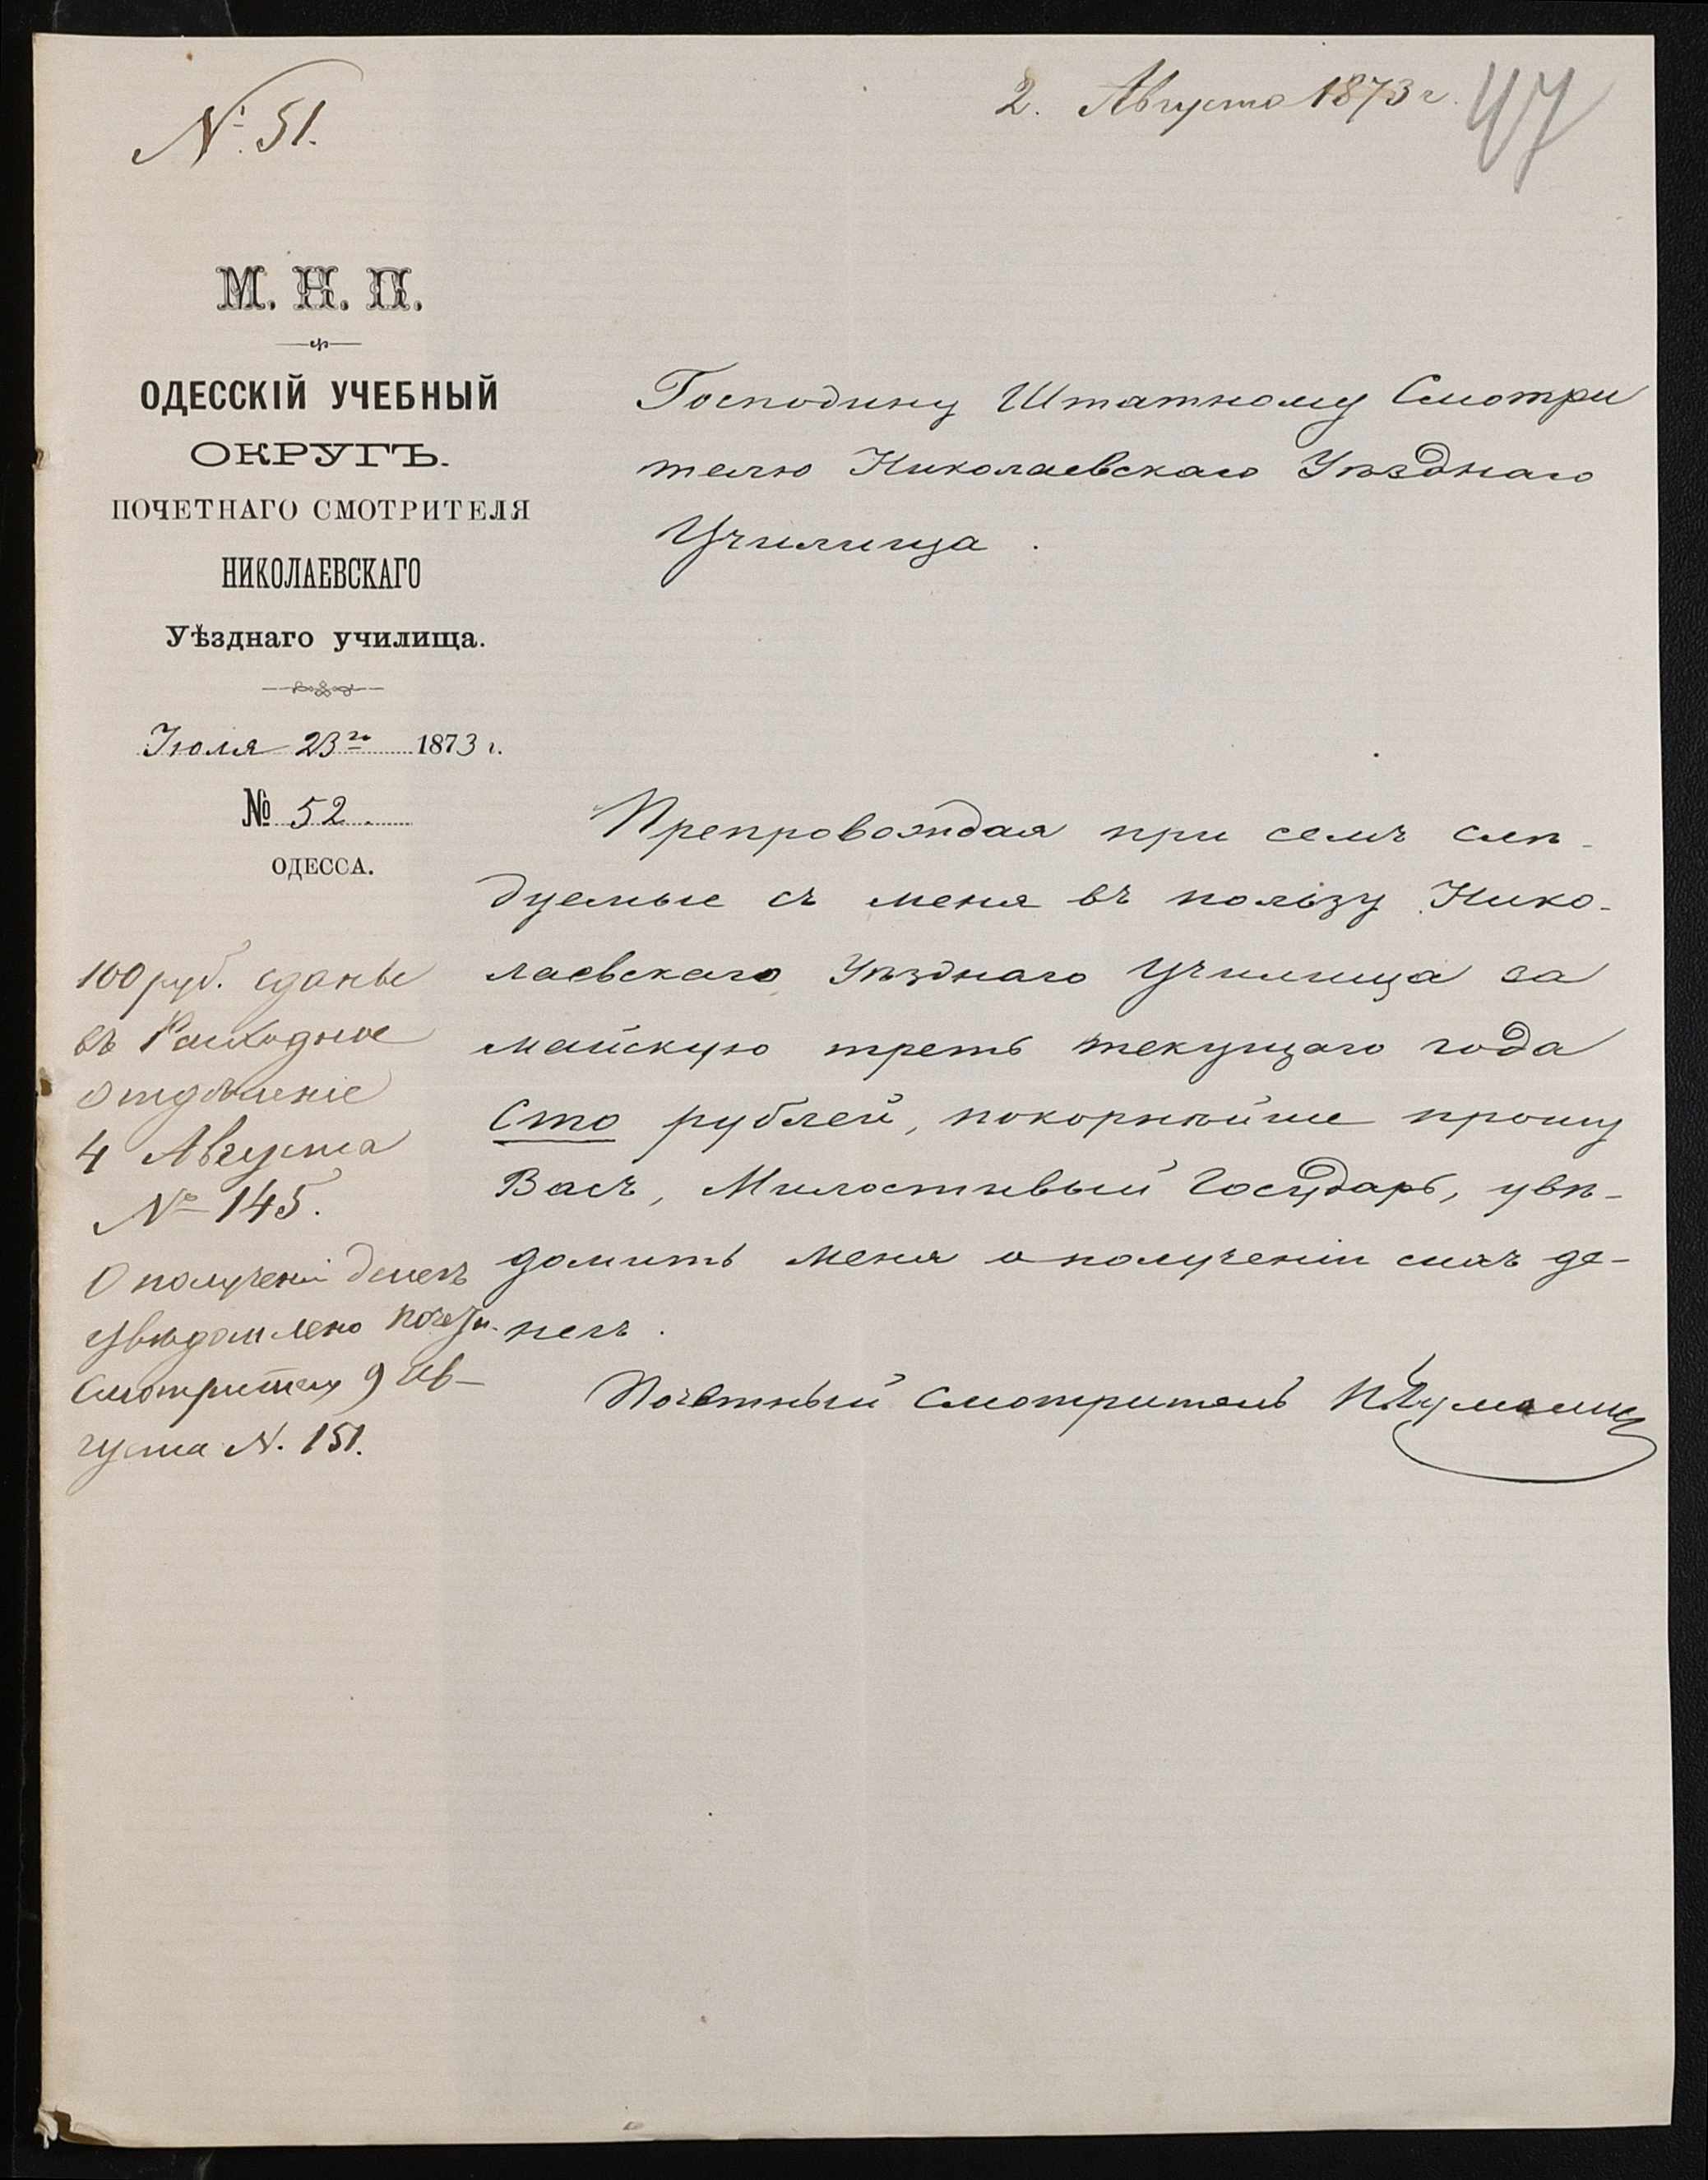 № 51.
2. Августа 1873 г.
47
М. Н. П.
ОДЕССКІЙ УЧЕБНЫЙ
ОКРУГЪ.
ПОЧЕТНАГО СМОТРИТЕЛЯ
НИКОЛАЕВСКАГО
Уѣзднаго училища.
Іюля 23го 1873 г.
№ 52.
ОДЕССА.
Господину Штатному Смотри
телю Николаевскаго Уѣзднаго
Училища.
Препровождая при семъ слѣ-
дуемые съ меня въ пользу Нико-
лаевскаго Уѣзднаго Училища за
майскую треть текущаго года
Сто рублей, покорнѣйше прошу
Васъ, Милостивый Государь, увѣ-
домить меня о полученіи сихъ де-
негъ.
Почетный Смотритель
100 руб. сданы
въ Расходное
отдѣленіе
4 Августа
№ 145.
О полученіи денегъ
увѣдомлено почетн.
Смотрителю 9 Ав-
густа N. 151.